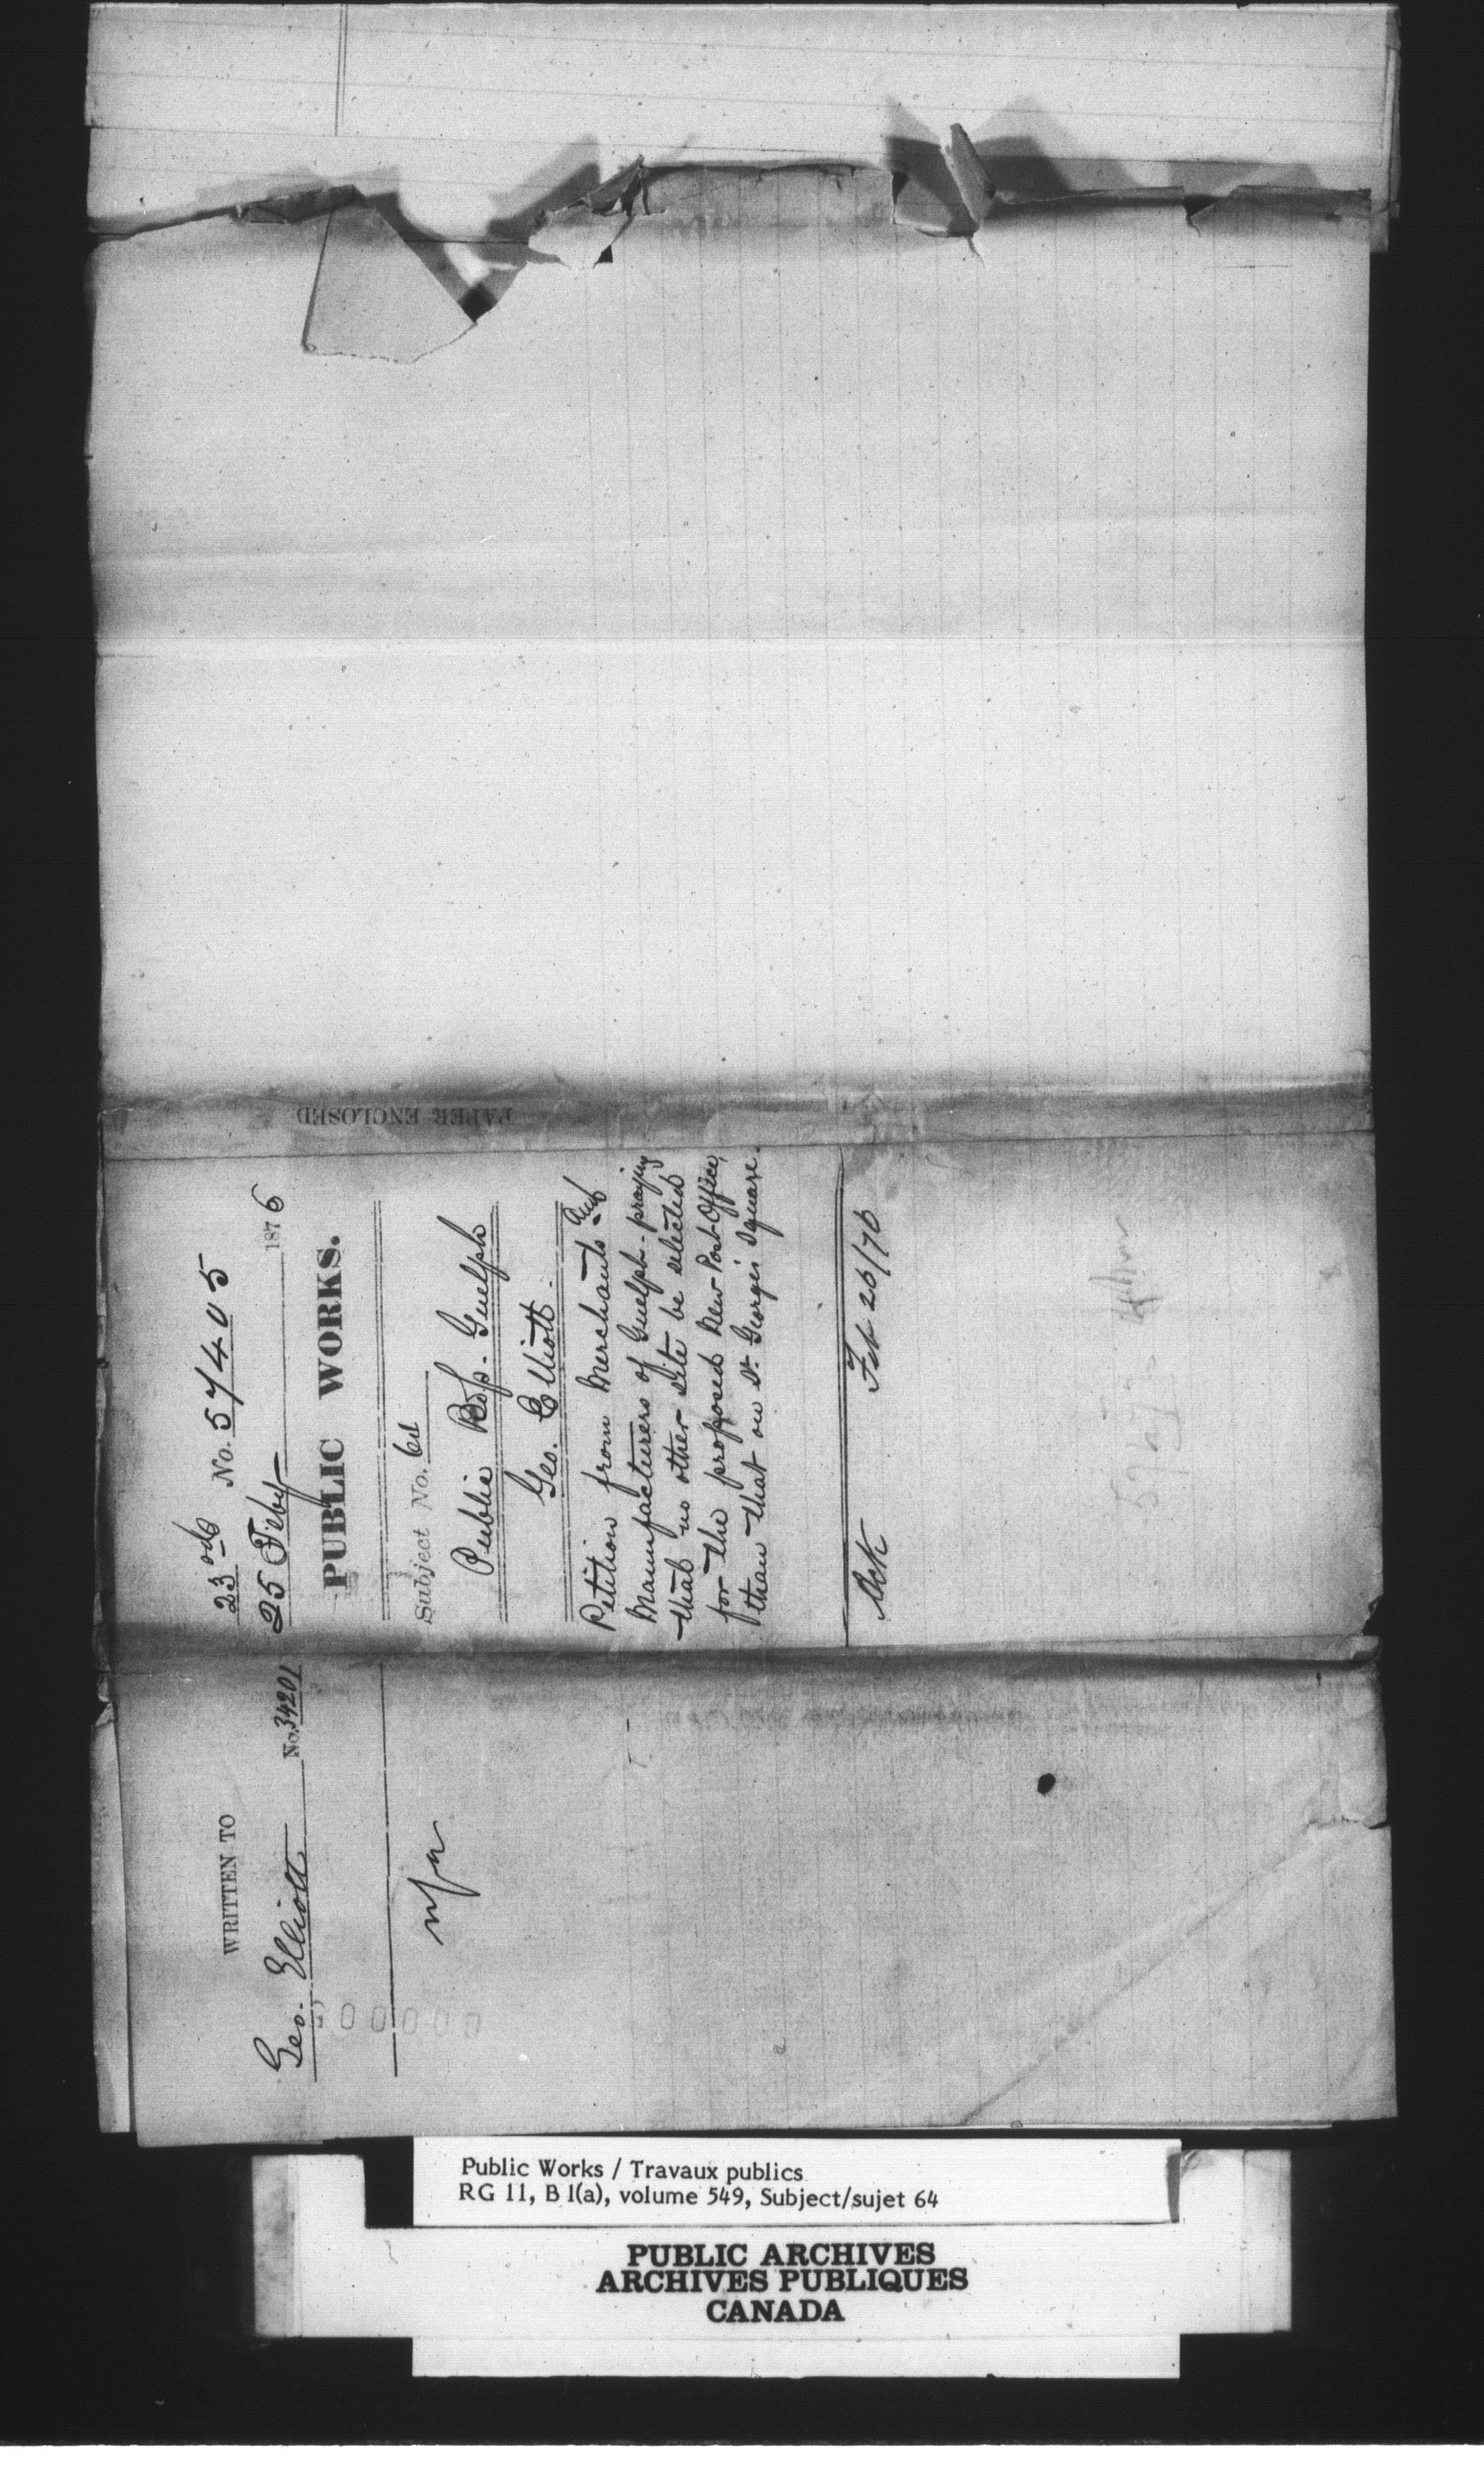 WRITTEN TO
Geo. Elliott No. 34201
23rd No. 57405
25 Feby 1876
PUBLIC WORKS.
Subject No. 64
Public Bdgs. Guelph
Geo. Elliott.
Petition from Merchants and
Manufacturers of Guelph - praying
that no other site be selected
for the proposed New Post Office,
than that on St. George's Square.
Ack Feb 26/76
PAPER ENCLOSED
Public Works / Travaux publics
RG 11, B 1(a), volume 549, Subject/sujet 64
PUBLIC ARCHIVES
ARCHIVES PUBLIQUES
CANADA